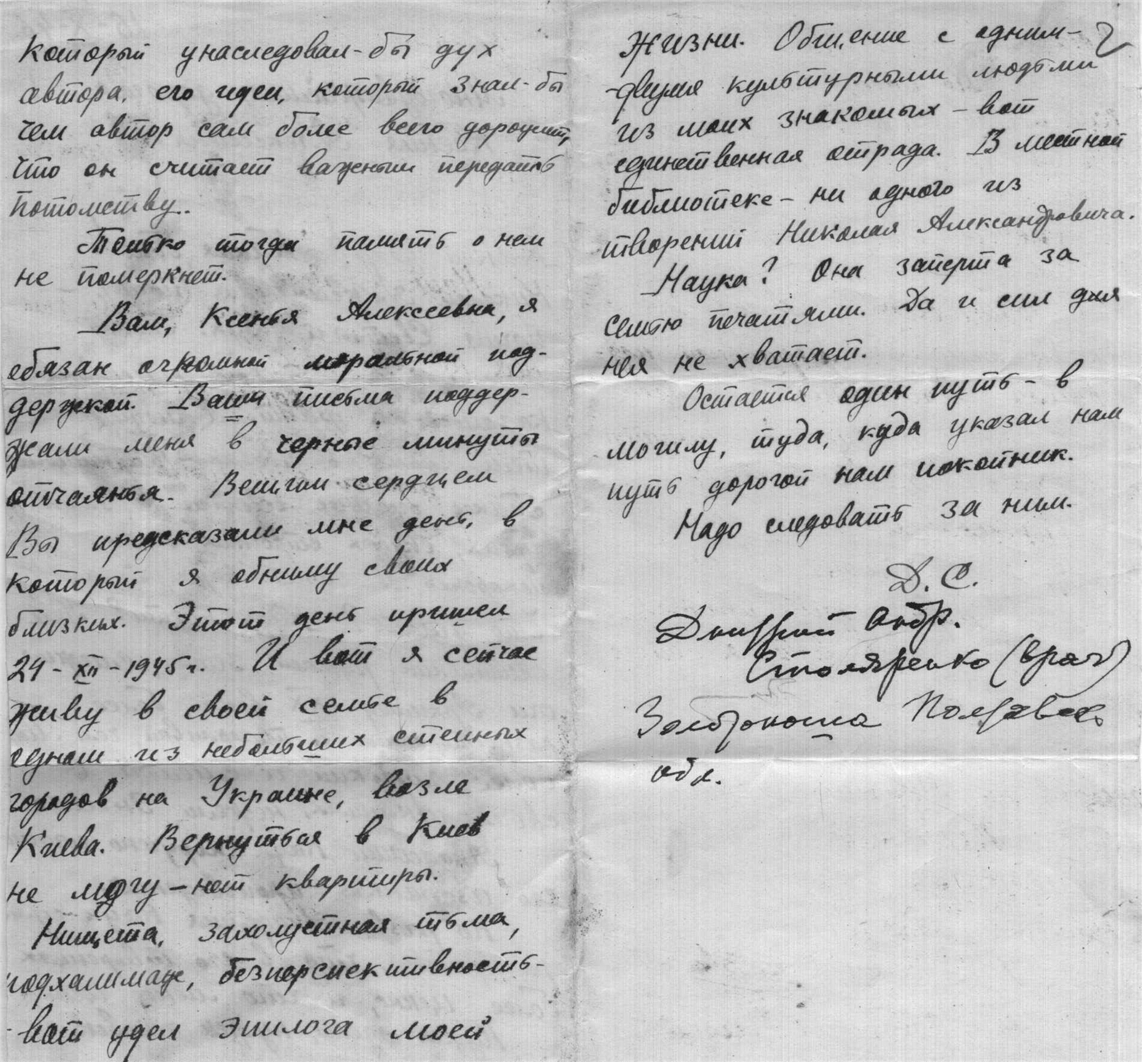 который унаследовал-бы дух
автора, его идеи, который знал-бы
чем автор сам более всего дорожит,
что он считает важным передать
потомству.
Только тогда память о нем
не померкнет.
Вам, Ксенья Алексеевна, я
обязан огромной моральной под-
держкой. Ваши письма поддер-
жали меня в черные минуты
отчаянья. Вещим сердцем
Вы предсказали мне день, в
который я обниму своих
близких. Этот день пришел
24-XII-1945г. И вот я сейчас
живу в своей семье в
одном из небольших степных
городов на Украине, возле
Киева. Вернуться в Киев
не могу – нет квартиры.
Нищета, захолустная тьма,
подхалимаж, безперспективность-
- вот удел эпилога моей
2
жизни. Общение с одним-
-двумя культурными людьми
из моих знакомых – вот
единственная отрада. В местной
библиотеке – ни одного из
творений Николая Александровича.
Наука? Она заперта за
семью печатями. Да и сил для
нея не хватает.
Остается один путь – в
могилу, туда, куда указал нам
путь дорогой нам покойник.
Надо следовать за ним.
Д. С.
Дмитрий Андр.
Столяренко (врач)
Золотоноша Полтавск
обл.